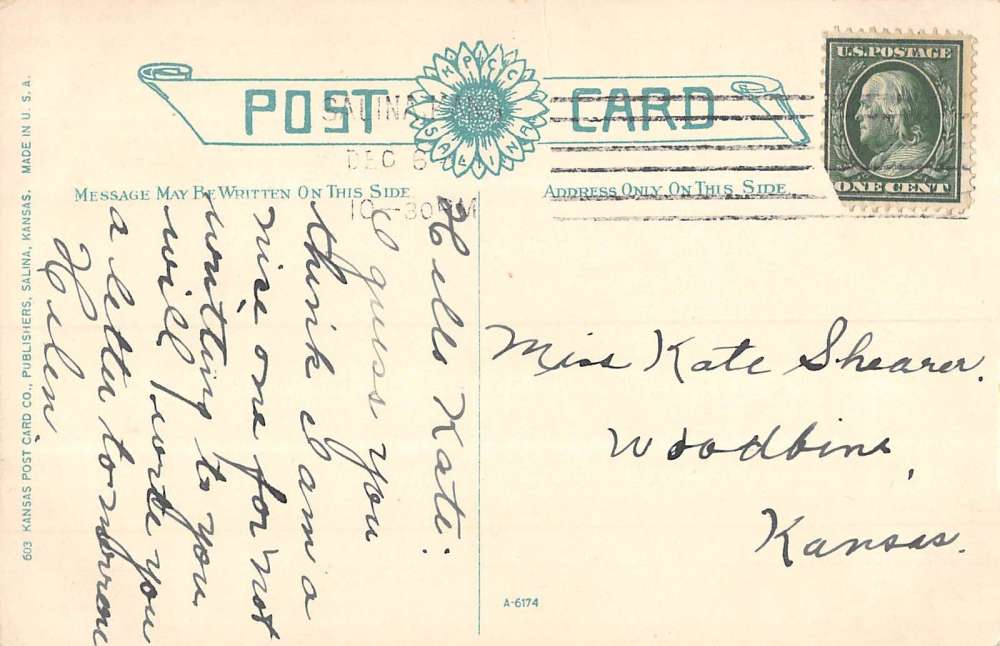 POST CARD
KPCC
SALINA
SALINA, KANS.
DEC 6
10-30PM
U.S. POSTAGE
ONE CENT
MESSAGE MAY BE WRITTEN ON THIS SIDE
ADDRESS ONLY ON THIS SIDE
Hello Kate:
I guess you
think I am a
nise one for not
writing to you.
will write you
a letter tomorrow
Helen.
Miss Kate Shearer.
Woodbine,
Kansas.
A-6174
603 KANSAS POST CARD CO., PUBLISHERS, SALINA, KANSAS. MADE IN U. S. A.